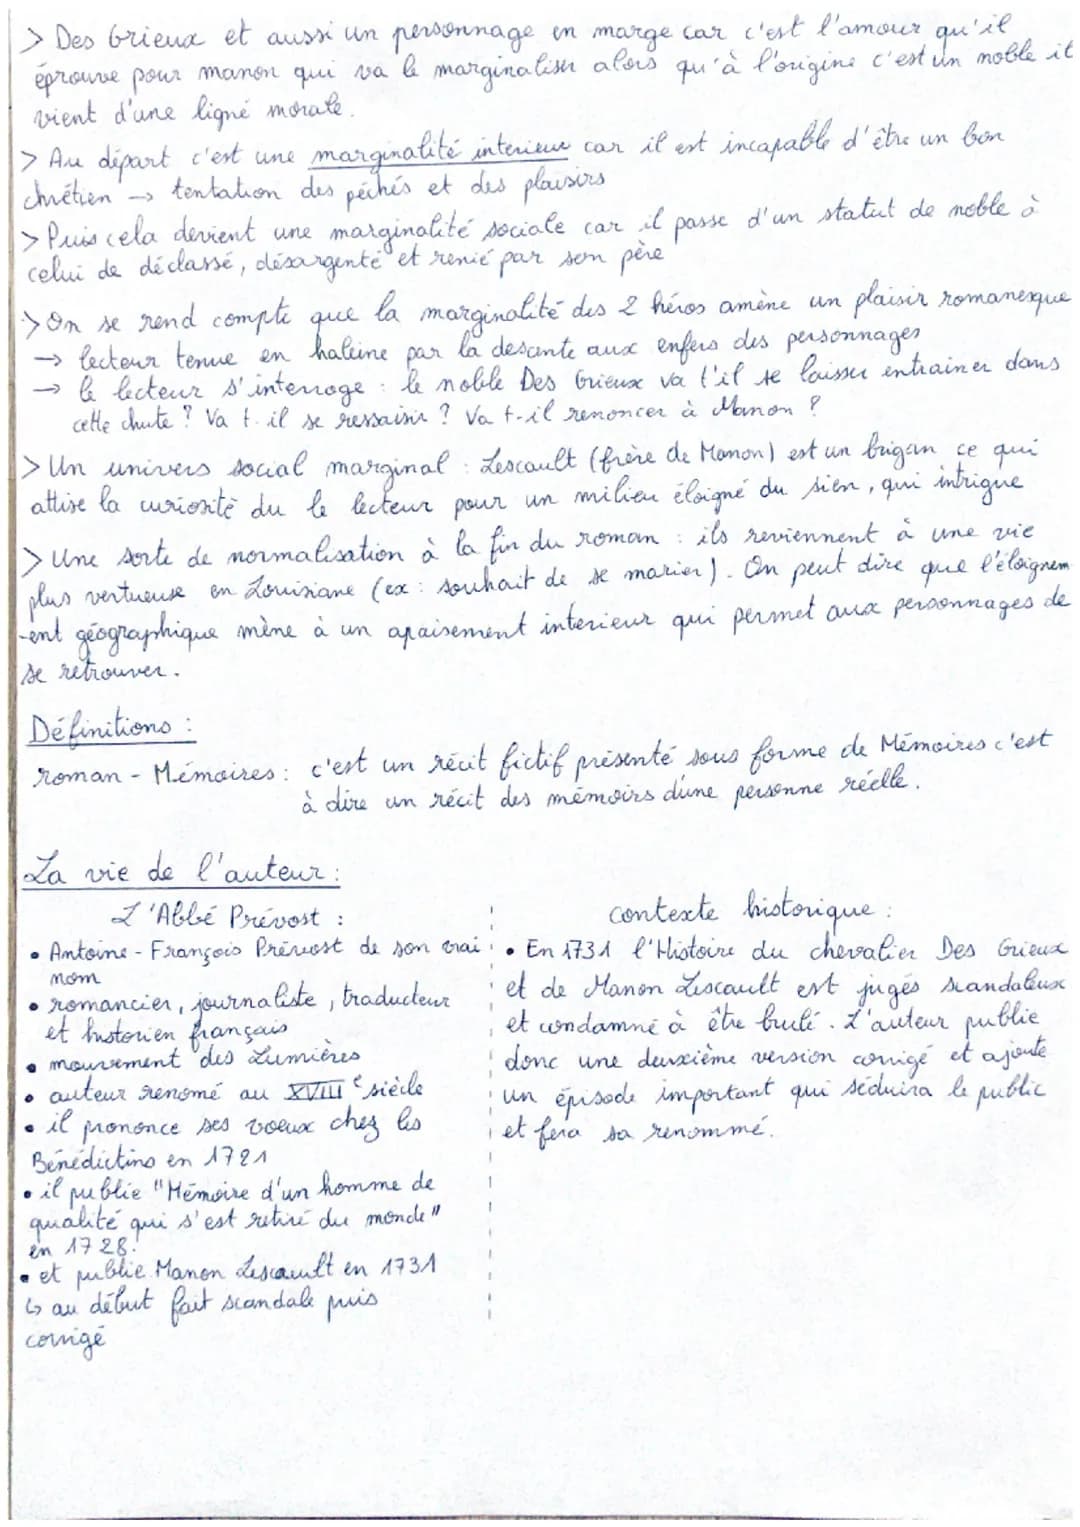 > Des Grieux et aussi un personnage en marge car c'est l'amour qu'il
éprouve pour manon qui va le marginaliser alors qu'à l'origine c'est un noble it
vient d'une ligné morale.
> Au départ c'est une marginalité interieur car il est incapable d'être un bon
chrétien → tentation des péchés et des plaisirs
> Puis cela devient une marginalité sociale car il passe d'un statut de noble à
celui de déclassé, désargenté et renié par son père
> On se rend compte que la marginalité des 2 héros amène un plaisir romanesque
→ lecteur tenue en haleine par la descente aux enfers des personnages
→ le lecteur s'interroge : le noble Des Grieux va t'il se laisser entrainer dans
cette chute ? Va t-il se ressaisir ? Va t-il renoncer à Manon ?
> Un univers social marginal : Lescault (frère de Manon) est un brigan ce qui
attise la curiosité du le lecteur pour un milieu éloigné du sien, qui intrigue
> Une sorte de normalisation à la fin du roman : ils reviennent à une vie
plus vertueuse en Louisiane (ex : souhait de se marier). On peut dire que l'éloignem
-ent géographique mène à un apaisement interieur qui permet aux personnages de
se retrouver.
Définitions :
roman - Mémoires : c'est un récit fictif présenté sous forme de Mémoires c'est
à dire un récit des mémoirs d'une personne réelle.
La vie de l'auteur :
L'Abbé Prévost :
• Antoine - François Prévost de son vrai
nom
• romancier, journaliste, traducteur
et historien français
• mouvement des Lumières
• auteur renomé au XVIII e siècle
• il prononce ses voeux chez les
Bénédictins en 1721
• il publie "Mémoire d'un homme de
qualité qui s'est retiré du monde"
en 1728.
• et publie Manon Lescault en 1731
↳ au début fait scandale puis
corrigé
contexte historique :
• En 1731 l'Histoire du chevalier Des Grieux
et de Manon Lescault est jugés scandaleux
et condamné à être brulé. L'auteur publie
donc une deuxième version corrigé et ajoute
un épisode important qui séduira le public
et fera sa renommé.